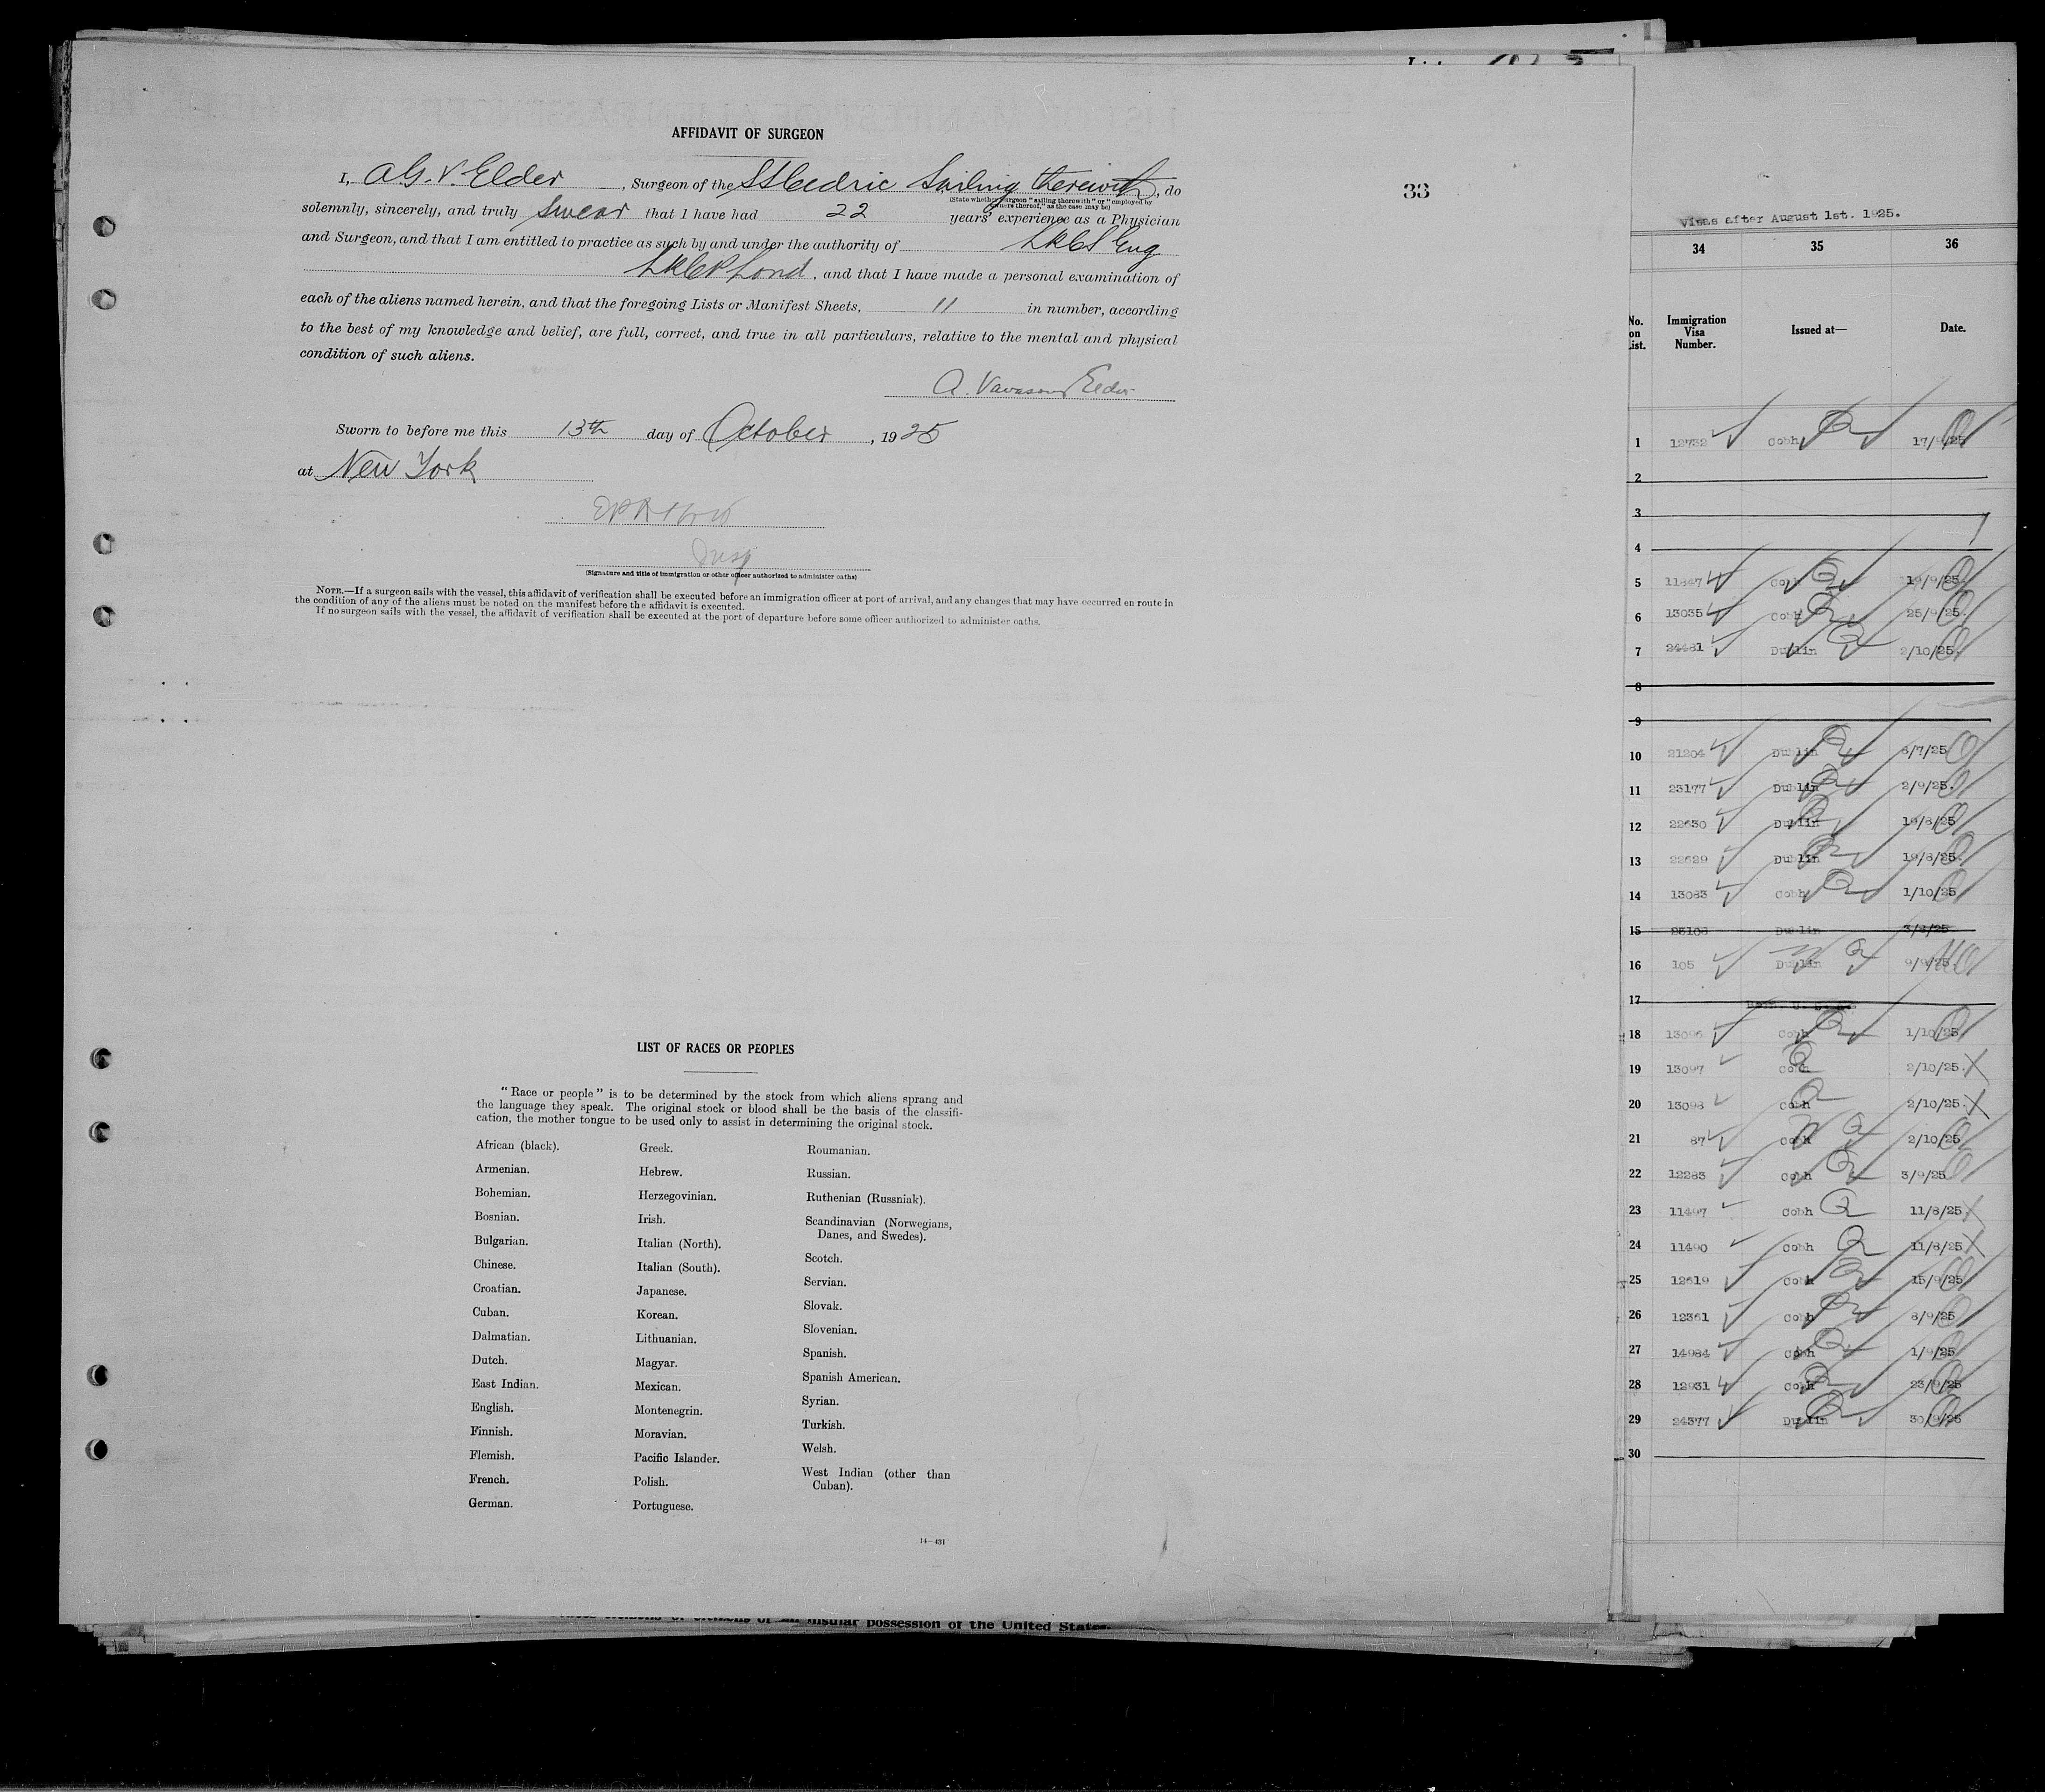 AFFIDAVIT OF SURGEON
I, A.G. V. Elder, Surgeon of the SS Cedric Sailing therewith, do
(State whether surgeon "sailing therewith" or "employed by
owners thereof," as the case may be)
solemnly, sincerely, and truly swear that I have had 22 years' experience as a Physician
and Surgeon, and that I am entitled to practice as such by and under the authority of LRCS Eng
LRCP Lond, and that I have made a personal examination of
each of the aliens named herein, and that the foregoing Lists or Manifest Sheets, 11 in number, according
to the best of my knowledge and belief, are full, correct, and true in all particulars, relative to the mental and physical
condition of such aliens.
A. Vavasour Elder
Sworn to before me this 13th day of October, 1925
at New York
Insp
(Signature and title of immigration or other officer authorized to administer oaths)
NOTE.—If a surgeon sails with the vessel, this affidavit of verification shall be executed before an immigration officer at port of arrival, and any changes that may have occurred en route in
the condition of any of the aliens must be noted on the manifest before the affidavit is executed.
If no surgeon sails with the vessel, the affidavit of verification shall be executed at the port of departure before some officer authorized to administer oaths.
33
LIST OF RACES OR PEOPLES
"Race or people" is to be determined by the stock from which aliens sprang and
the language they speak. The original stock or blood shall be the basis of the classifi-
cation, the mother tongue to be used only to assist in determining the original stock.
African (black).
Armenian.
Bohemian.
Bosnian.
Bulgarian.
Chinese.
Croatian.
Cuban.
Dalmatian.
Dutch.
East Indian.
English.
Finnish.
Flemish.
French.
German.
Greek.
Hebrew.
Herzegovinian.
Irish.
Italian (North).
Italian (South).
Japanese.
Korean.
Lithuanian.
Magyar.
Mexican.
Montenegrin.
Moravian.
Pacific Islander.
Polish.
Portuguese.
Roumanian.
Russian.
Ruthenian (Russniak).
Scandinavian (Norwegians,
Danes, and Swedes).
Scotch.
Servian.
Slovak.
Slovenian.
Spanish.
Spanish American.
Syrian.
Turkish.
Welsh.
West Indian (other than
Cuban).
14—431
possession of the United States.
Visas after August 1st. 1925.
34 35 36
No.
on
List.
Immigration
Visa
Number.
Issued at—
Date.
1 12732 Cobh 17/9/25
2
3
4
5 11847 Cobh 19/9/25.
6 13035 Cobh 25/9/25.
7 24481 Dublin 2/10/25.
8
9
10 21204 Dublin /7/25
11 23177 Dublin 2/9/25.
12 22630 Dublin 19/8/25.
13 22629 Dublin 19/8/25.
14 13083 Cobh 1/10/25
15 23108 Dublin 3/8/25
16 105 Dublin 9/9/25.
17 U. S. A.
18 13096 Cobh 1/10/25
19 13097 Cobh 2/10/25.
20 13098 Cobh 2/10/25.
21 87 Cobh 2/10/25
22 12283 Cobh 3/9/25
23 11497 Cobh 11/8/25.
24 11490 Cobh 11/8/25
25 12619 Cobh 15/9/25
26 12361 Cobh 8/9/25
27 14984 Cobh 1/9/25
28 12931 Cobh 23/9/25
29 24377 Dublin 30/9/25
30